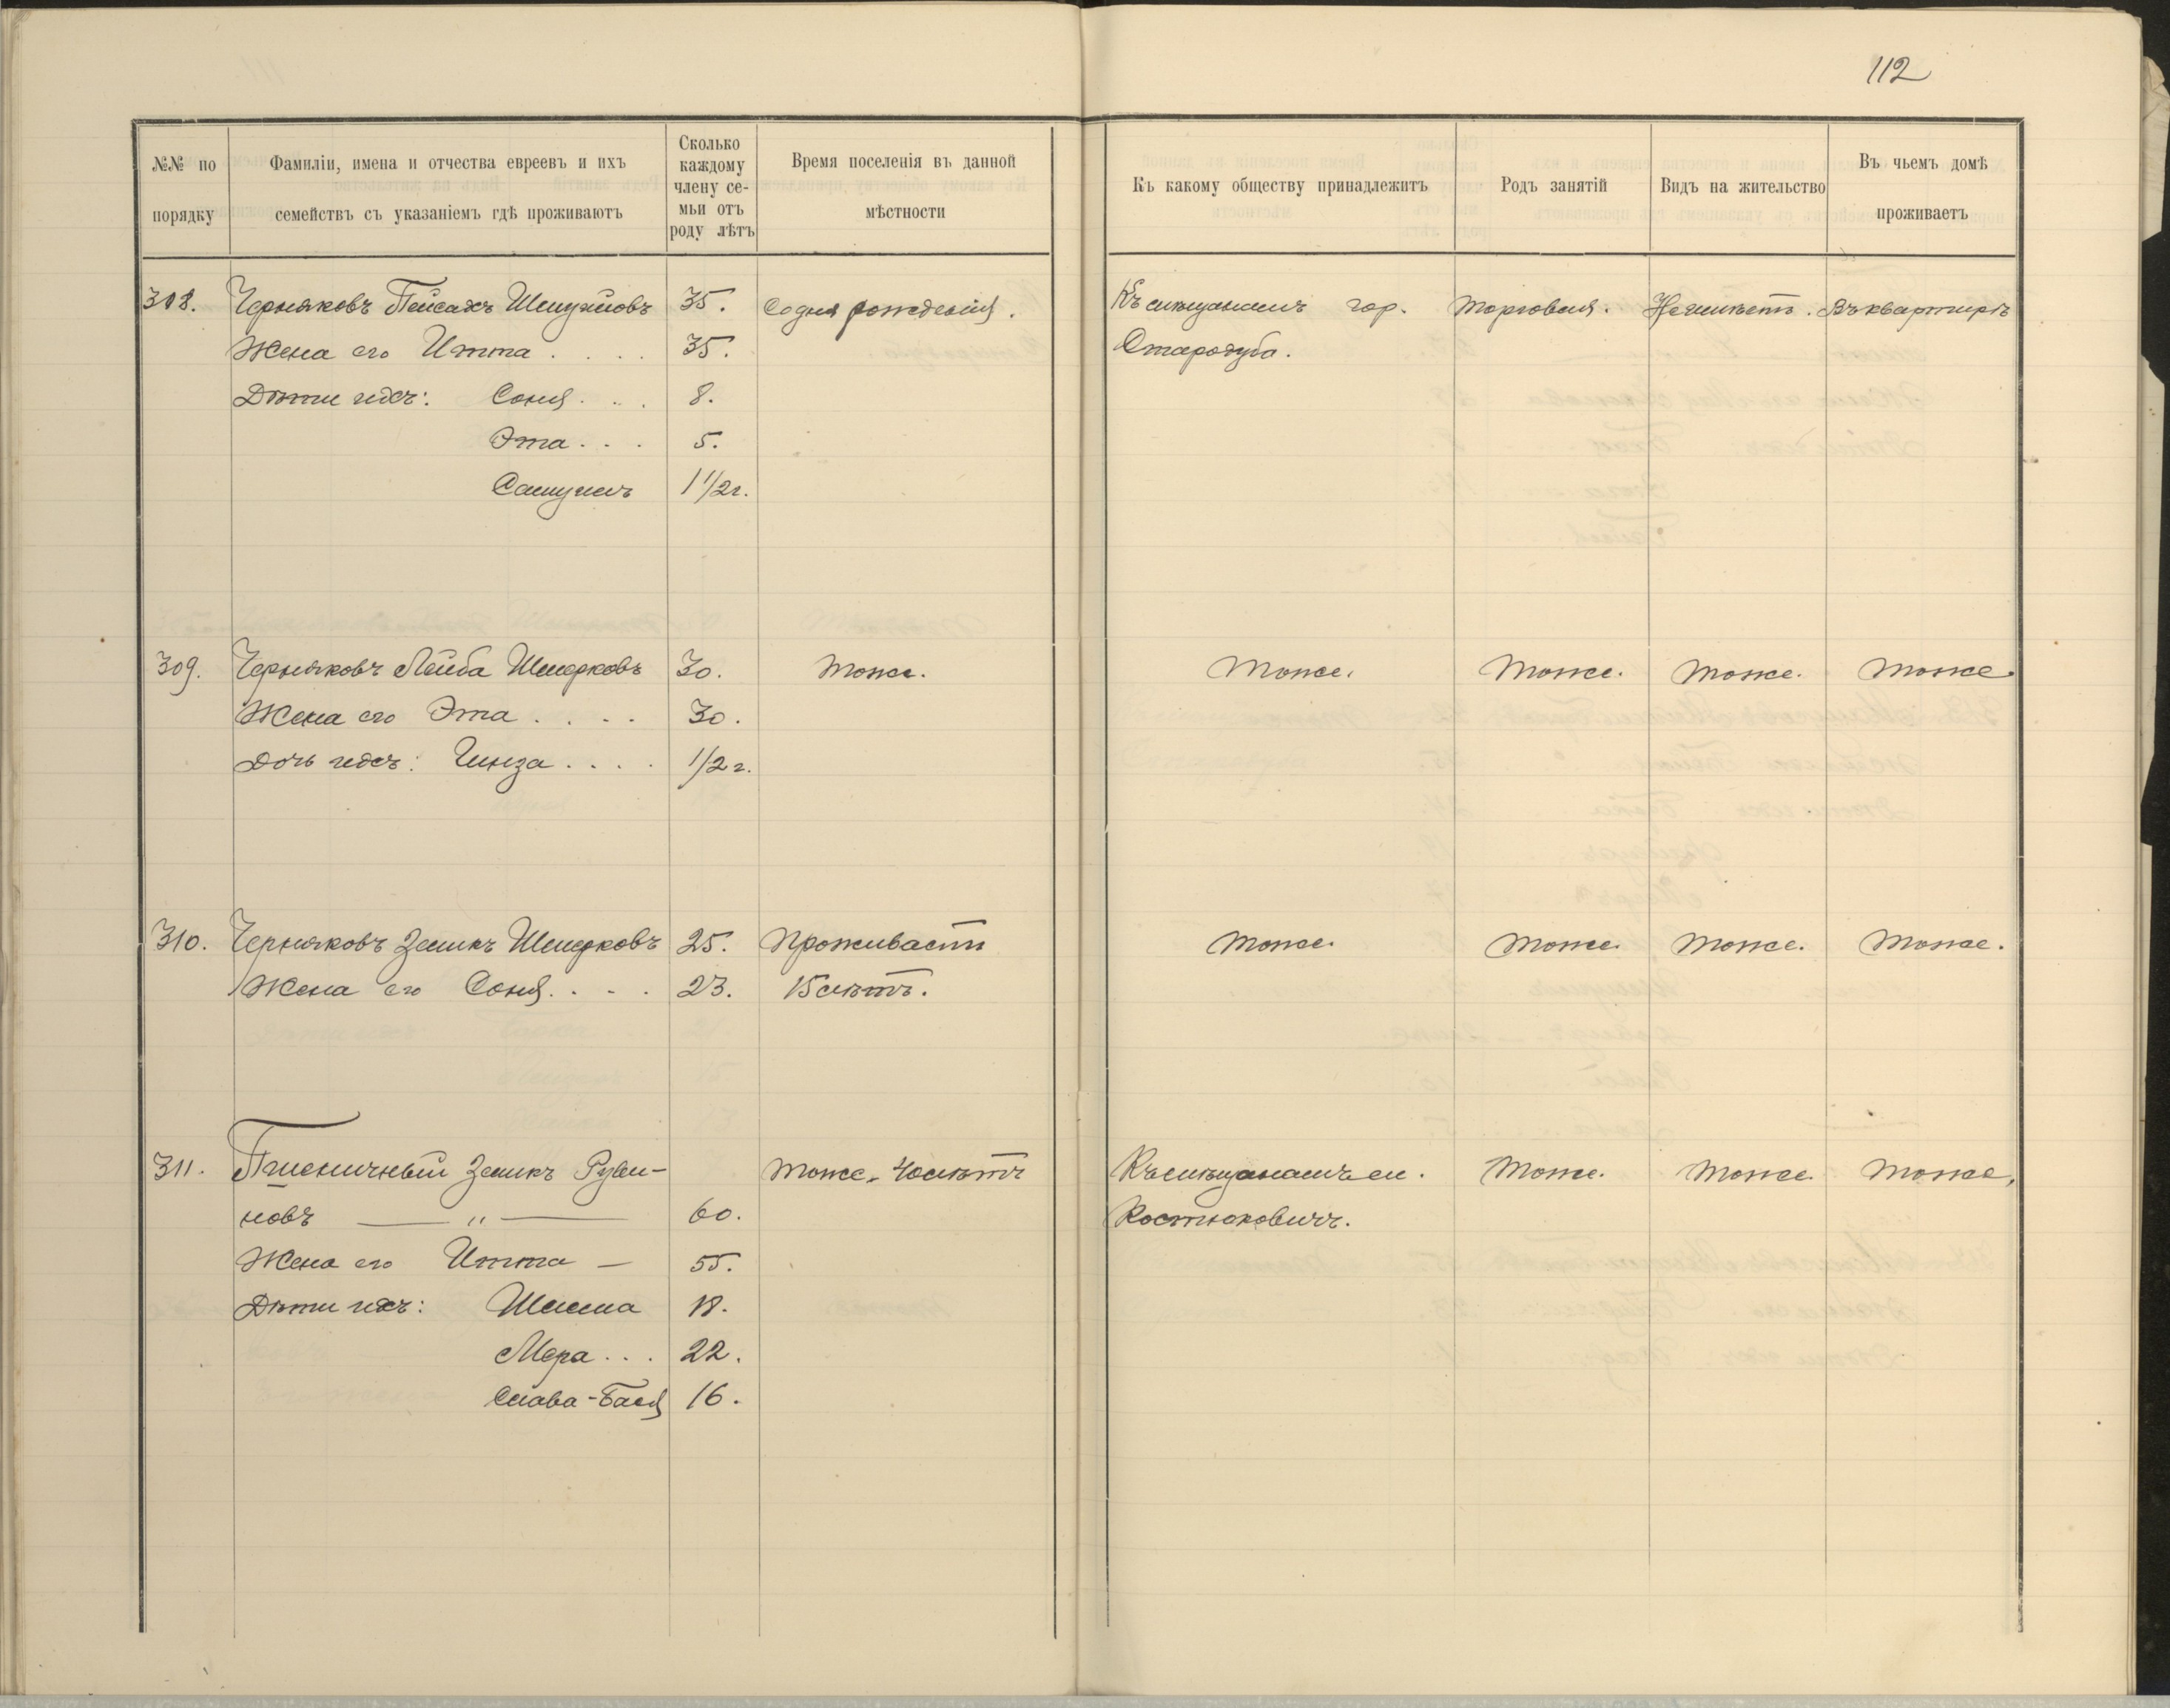 112
№№ по порядку
Фамиліи, имена и отчества евреевъ и ихъ семействъ съ указаніемъ гдѣ проживаютъ
Сколько каждому члену се-мьи отъ роду лѣтъ
Время поселенія въ данной мѣстности
Къ какому обществу принадлежитъ
Родъ занятій
Видъ на жительство
Въ чьемъ домѣ проживаетъ
308. Черняковъ Пейсахъ 35. Со дня рожденія. Къ мѣщанамъ гор. Торговля. Не имѣетъ. Въ квартирѣ
Жена его Итта . . . . 35. Стародуба.
Дѣти ихъ: Соня . . . 8.
Эта . . . 5.
Самуилъ 1 1/2 г.
309. Черняковъ Лейба Шмерковъ 30. Тоже. Тоже. Тоже. Тоже. Тоже.
Жена его Эта . . . . 30.
Дочь ихъ: Гинза . . . . 1/2 г.
310. Черняковъ Зеликъ Шмерковъ 25. Проживаетъ Тоже. Тоже. Тоже. Тоже.
Жена его Соня . . . . 23. 15 лѣтъ.
311. Пшеничный Зеликъ Руви- Тоже. 40 лѣтъ Къ мѣщанамъ м. Тоже. Тоже. Тоже.
новъ — " — 60. Костюковичъ.
Жена его Итта — 55.
Дѣти ихъ: 18.
Мера . . . 22.
Слава-Бася 16.